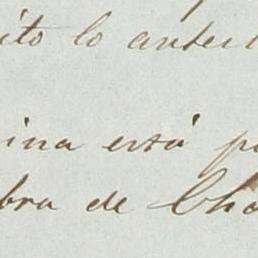 ito lo anter
ina está p
bra de Cho